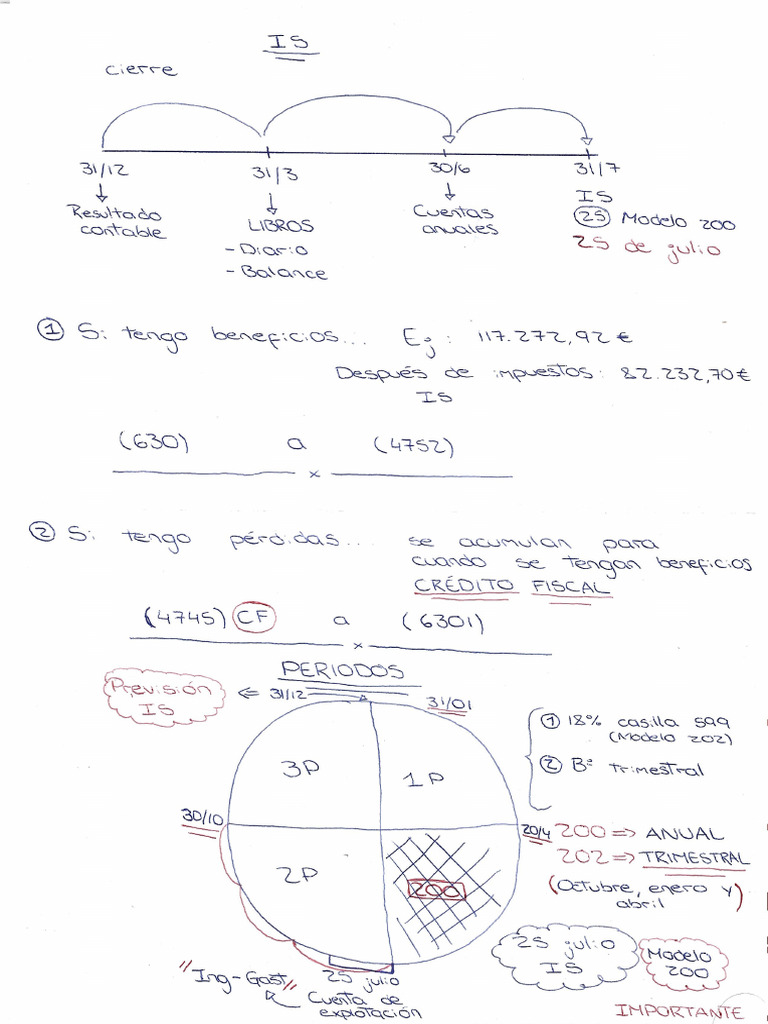 IS
cierre
31/12 31/3 30/6 31/7
Resultado contable
LIBROS
- Diario
- Balance
Cuentas anuales
IS
25 Modelo 200
25 de julio
① Si tengo beneficios... Ej: 117.272,92 €
Después de impuestos: 82.232,70 €
IS
(630) a (4752)
x
② Si tengo pérdidas... se acumulan para
cuando se tengan beneficios
CRÉDITO FISCAL
(4745) CF a (6301)
x
PERIODOS
Previsión
IS
⇐ 31/12
31/01
3P 1P
① 18% casilla 599
(Modelo 202)
② Bº trimestral
30/10
20/4
200 => ANUAL
202 => TRIMESTRAL
(Octubre, enero y
abril)
2P
200
25 julio
IS
Modelo
200
"Ing-Gast"
25 julio
Cuenta de
explotación
IMPORTANTE